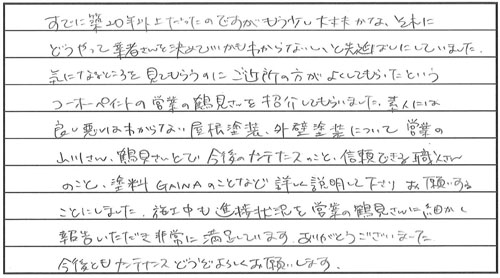 すでに築20年以上だったのですがもう少し大丈夫かな、それに
どうやって業者さんを決めていいかもわからないしと先延ばしにしていました。
気になるところを見てもらうのにご近所の方がよくしてもらったという
コーオーペイントの営業の鶴見さんを紹介してもらいました。素人には
良し悪しはわからない屋根塗装、外壁塗装について営業の
山川さん、鶴見さんとで今後のメンテナンスのこと、信頼できる職人さん
のこと、塗料GAINAのことなど詳しく説明して下さりお願いする
ことにしました。施工中も進捗状況を営業の鶴見さんに細かく
報告いただき非常に満足しています。ありがとうございました。
今後ともメンテナンスどうぞよろしくお願いします。